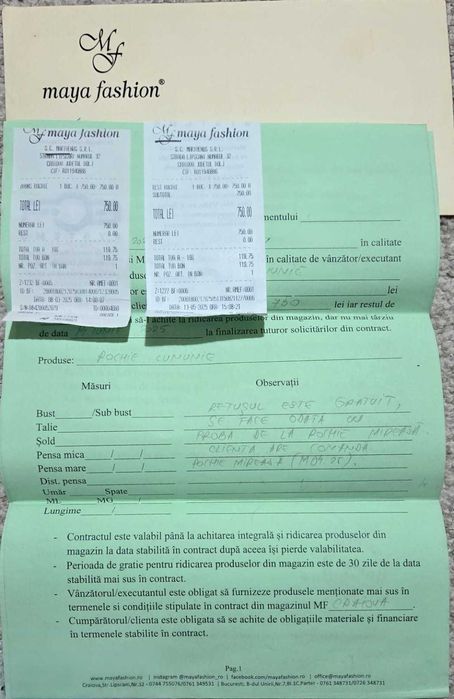 MF
maya fashion®
maya fashion
S.C. MACTRENDS S.R.L.
STRADA LIPSCANI NUMARUL 32
CRAIOVA JUDETUL DOLJ
TOTAL LEI 750.00
NUMERAR LEI 750.00
REST 0.00
TOTAL TVA A - 19% 119.75
TOTAL TVA BON 119.75
NR. POZ. ART. IN BON 1
maya fashion
S.C. MACTRENDS S.R.L.
STRADA LIPSCANI NUMARUL 32
CRAIOVA JUDETUL DOLJ
REST ROCHIE 1 BUC. X 750.00 750.00 A
SUBTOTAL 750.00
TOTAL LEI 750.00
NUMERAR LEI 750.00
REST 0.00
TOTAL TVA A - 19% 119.75
TOTAL TVA BON 119.75
NR. POZ. ART. IN BON 1
DATA: 13-05-2025
mentului
în calitate
în calitate de vânzător/executant
lei
750 lei iar restul de
să-l achite la ridicarea produselor din magazin, dar nu mai târziu
de data 2025 la finalizarea tuturor solicitărilor din contract.
Produse: ROCHIE CUNUNIE
Măsuri Observații
Bust /Sub bust RETUSUL ESTE GRATUIT,
Talie SE FACE ODATA CU
Șold PROBA DE LA ROCHIE MIREASĂ
Pensa mica / / CLIENTA ARE COMANDA
Pensa mare / / ROCHIE MIREASĂ
Dist. pensa
Umăr Spate
Lungime /
- Contractul este valabil până la achitarea integrală și ridicarea produselor din
magazin la data stabilită în contract după aceea își pierde valabilitatea.
- Perioada de gratie pentru ridicarea produselor din magazin este de 30 zile de la data
stabilită mai sus în contract.
- Vânzătorul/executantul este obligat să furnizeze produsele menționate mai sus in
termenele si condițiile stipulate în contract din magazinul MF CRAIOVA.
- Cumpărătorul/clienta este obligata să se achite de obligațiile materiale și financiare
în termenele stabilite în contract.
Pag.1
www.mayafashion.ro | instagram @mayafashion_ro | facebook.com/mayafashion.ro | office@mayafashion.ro
Craiova,Str.Lipscani,Nr.32 - 0744 755076/0761 349531 | Bucuresti, B-dul Unirii,Nr.7,Bl.1C,Parter - 0761 348731/0726 348731